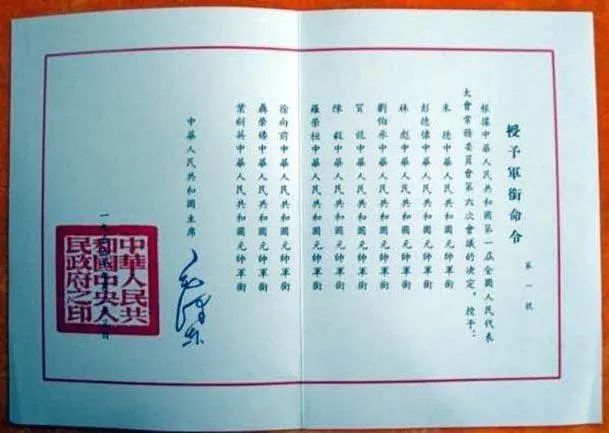 授予軍銜命令
第一號
根據中華人民共和國第一屆全國人民代表
大會常務委員會第六次會議的決定,授予:
朱 德中華人民共和國元帥軍銜
彭德懷中華人民共和國元帥軍銜
林 彪中華人民共和國元帥軍銜
劉伯承中華人民共和國元帥軍銜
賀 龍中華人民共和國元帥軍銜
陳 毅中華人民共和國元帥軍銜
羅榮桓中華人民共和國元帥軍銜
徐向前中華人民共和國元帥軍銜
聶榮臻中華人民共和國元帥軍銜
葉劍英中華人民共和國元帥軍銜
中華人民共和國主席
毛澤东
一九
中華人民共
和國中央人
民政府之印